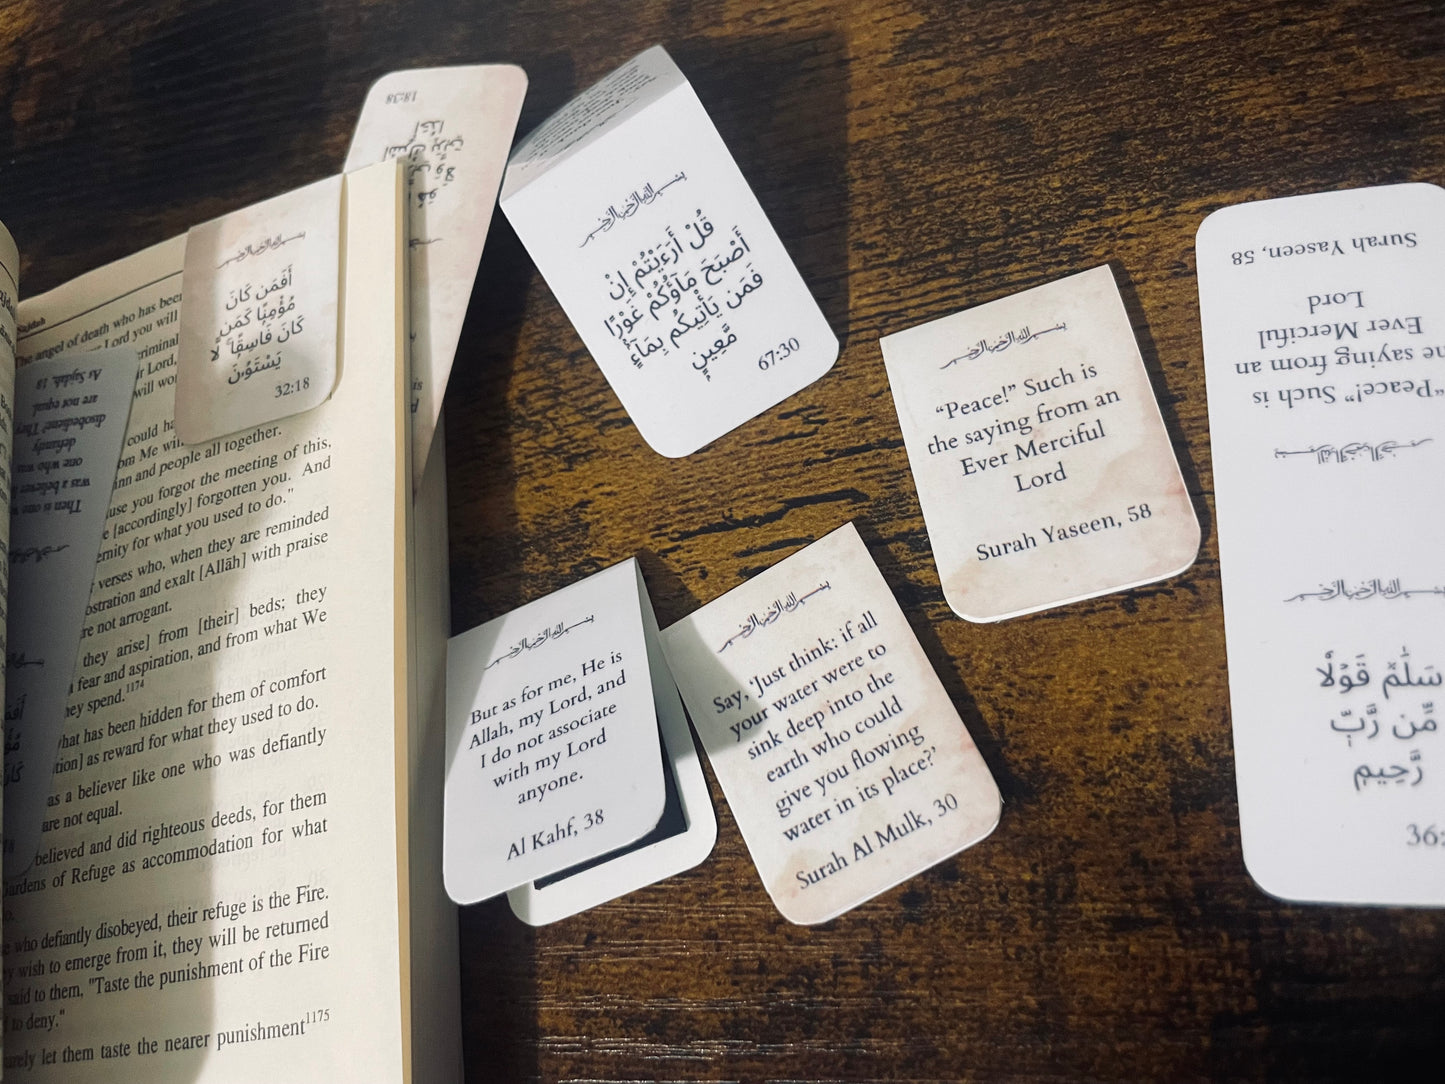 18:38
﷽
أَفَمَن كَانَ
مُؤْمِنًا كَمَن
كَانَ فَاسِقًا ۚ لَّا
يَسْتَوُۥنَ
32:18
﷽
قُلْ أَرَءَيْتُمْ إِنْ
أَصْبَحَ مَآؤُكُمْ غَوْرًا
فَمَن يَأْتِيكُم بِمَآءٍ
مَّعِينٍۭ
67:30
﷽
“Peace!” Such is
the saying from an
Ever Merciful
Lord
Surah Yaseen, 58
﷽
But as for me, He is
Allah, my Lord, and
I do not associate
with my Lord
anyone.
Al Kahf, 38
﷽
Say, ‘Just think: if all
your water were to
sink deep into the
earth who could
give you flowing
water in its place?’
Surah Al Mulk, 30
﷽
“Peace!” Such is
saying from an
Ever Merciful
Lord
Surah Yaseen, 58
﷽
سَلَٰمٌ قَوْلًا
مِّن رَّبٍّ
رَّحِيمٍ
36:
﷽
Then is one
was a believer
one who was
defiantly
disobedient? They
are not equal.
As Sajdah, 18
Sajdah
The angel of death who has been
Lord you will
criminal
Lord,
will
could
Me
jinn and people all together.
you forgot the meeting of this,
[accordingly] forgotten you. And
for what you used to do."
verses who, when they are reminded
and exalt [Allāh] with praise
are not arrogant.
they arise] from [their] beds; they
fear and aspiration, and from what We
they spend.1174
what has been hidden for them of comfort
as reward for what they used to do.
as a believer like one who was defiantly
are not equal.
believed and did righteous deeds, for them
Gardens of Refuge as accommodation for what
who defiantly disobeyed, their refuge is the Fire.
wish to emerge from it, they will be returned
said to them, "Taste the punishment of the Fire
to deny."
surely let them taste the nearer punishment1175